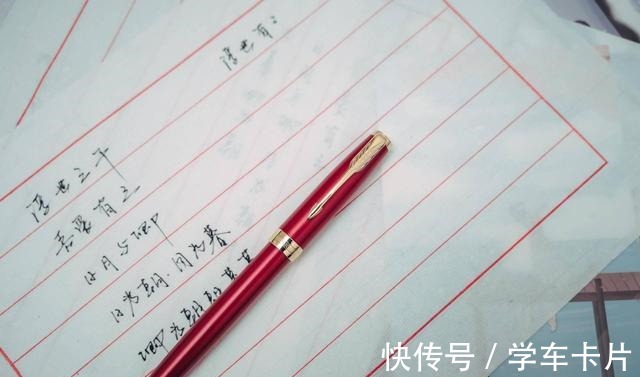 浮世有
浮世三千
吾爱有三
日月与卿
日为朝 月为暮
卿为朝朝暮暮
快传号 / 学车卡片